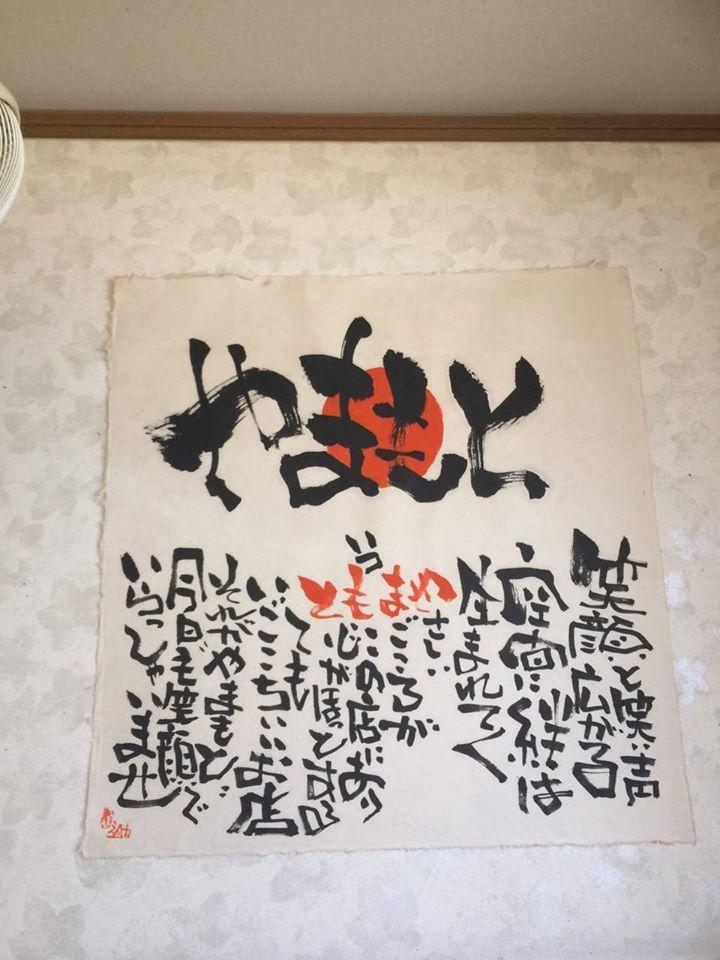 やまもと
笑顔と笑い声
広がる
空間に絆は
生まれてく
やさしい
まごころが
いつもこの店にあり
心がほっとする
とても
いごこちいいお店
それがやまもと
今日も笑顔で
いらっしゃいませ